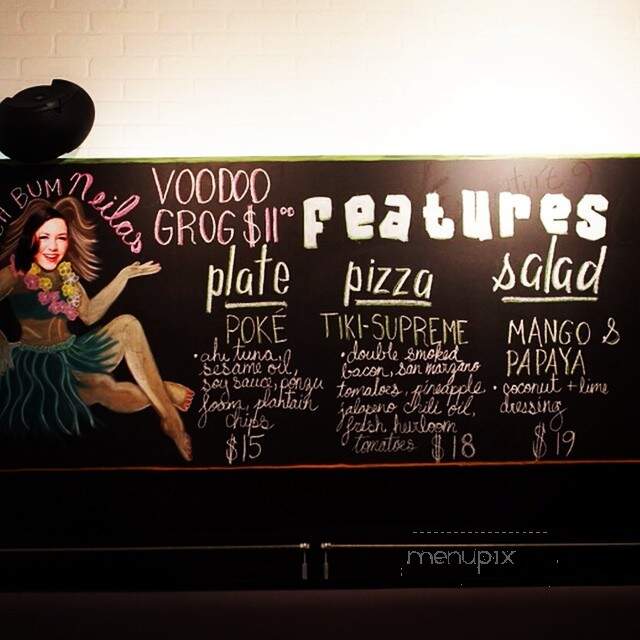 BUM Neilas
VOODOO
GROG $11.00
features
plate
POKÉ
• ahi tuna,
sesame oil,
soy sauce, ponzu
foam, plantain
chips
$15
pizza
TIKI-SUPREME
• double smoked
bacon, san marzano
tomatoes, pineapple
jalapeno chili oil,
fresh heirloom
tomatoes $18
salad
MANGO &
PAPAYA
• coconut + lime
dressing
$19
menupix